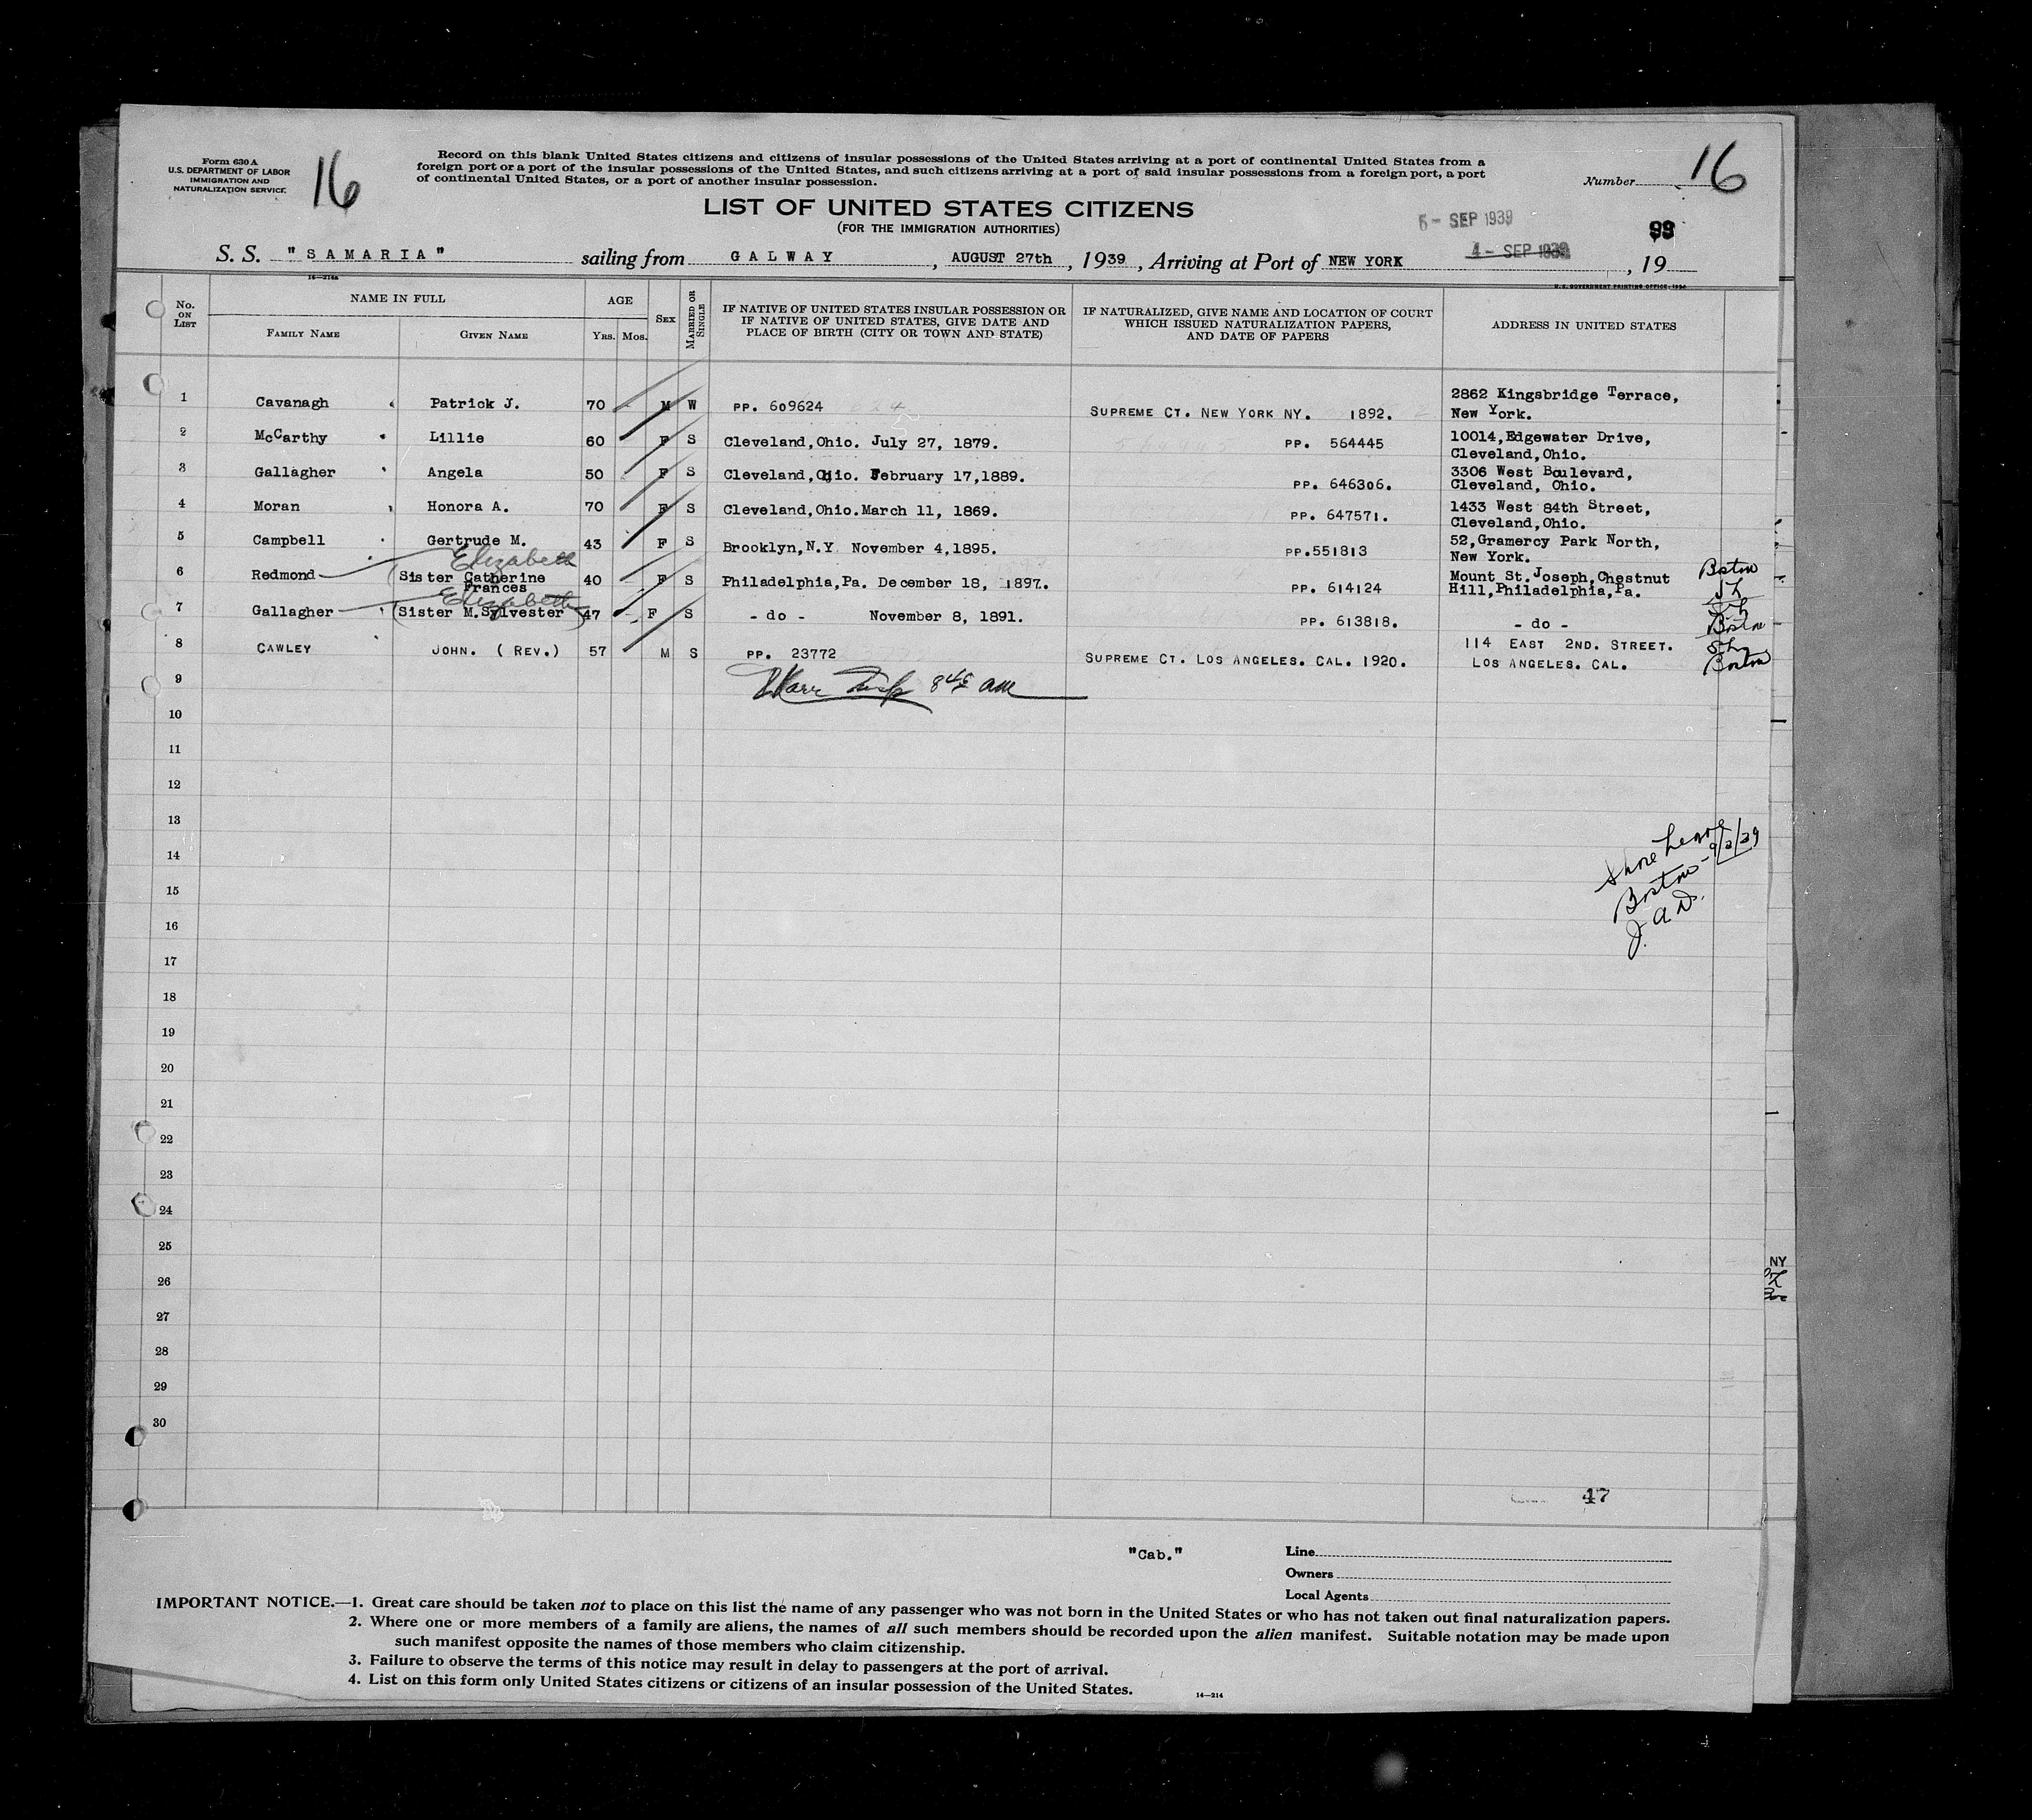 Form 630 A
U.S. DEPARTMENT OF LABOR
IMMIGRATION AND
NATURALIZATION SERVICE
16
Record on this blank United States citizens and citizens of insular possessions of the United States arriving at a port of continental United States from a
foreign port or a port of the insular possessions of the United States, and such citizens arriving at a port of said insular possessions from a foreign port, a port
of continental United States, or a port of another insular possession.
Number 16
LIST OF UNITED STATES CITIZENS
(FOR THE IMMIGRATION AUTHORITIES)
5- SEP 1939
99
4- SEP 1939
S. S. "SAMARIA" sailing from GALWAY, AUGUST 27th, 1939, Arriving at Port of NEW YORK, 19
16—214a
U.S. GOVERNMENT PRINTING OFFICE: 1934
No. ON LIST
NAME IN FULL
FAMILY NAME
GIVEN NAME
AGE
YRS. MOS.
SEX
MARRIED OR SINGLE
IF NATIVE OF UNITED STATES INSULAR POSSESSION OR
IF NATIVE OF UNITED STATES, GIVE DATE AND
PLACE OF BIRTH (CITY OR TOWN AND STATE)
IF NATURALIZED, GIVE NAME AND LOCATION OF COURT
WHICH ISSUED NATURALIZATION PAPERS,
AND DATE OF PAPERS
ADDRESS IN UNITED STATES
1 Cavanagh Patrick J. 70 M W PP. 609624 SUPREME CT. NEW YORK NY. 1892. 2862 Kingsbridge Terrace,
New York.
2 McCarthy Lillie 60 F S Cleveland,Ohio. July 27, 1879. PP. 564445 10014,Edgewater Drive,
Cleveland,Ohio.
3 Gallagher Angela 50 F S Cleveland,Ohio. February 17,1889. PP. 646306. 3306 West Boulevard,
Cleveland, Ohio.
4 Moran Honora A. 70 F S Cleveland,Ohio.March 11, 1869. PP. 647571. 1433 West 84th Street,
Cleveland,Ohio.
5 Campbell Gertrude M. 43 F S Brooklyn,N.Y. November 4,1895. PP.551813 52,Gramercy Park North,
New York.
Elizabeth
6 Redmond (Sister Catherine 40 F S Philadelphia,Pa. December 18, 1897. PP. 614124 Mount St.Joseph,Chestnut Boston
Frances Hill,Philadelphia,Pa.
Elizabeth
7 Gallagher (Sister M.Sylvester) 47 F S - do - November 8, 1891. PP. 613818. - do - Boston
8 CAWLEY JOHN. (REV.) 57 M S PP. 23772 SUPREME CT. LOS ANGELES. CAL. 1920. 114 EAST 2ND. STREET.
LOS ANGELES. CAL. Boston
9 8 45 am
10
11
12
13
14
15
16
17
18
19
20
21
22
23
24
25
26
27
28
29
30
Shore Leave
Boston - 9/3/39
J. A. D.
NY
47
"Cab."
Line
Owners
Local Agents
IMPORTANT NOTICE.—1. Great care should be taken not to place on this list the name of any passenger who was not born in the United States or who has not taken out final naturalization papers.
2. Where one or more members of a family are aliens, the names of all such members should be recorded upon the alien manifest. Suitable notation may be made upon
such manifest opposite the names of those members who claim citizenship.
3. Failure to observe the terms of this notice may result in delay to passengers at the port of arrival.
4. List on this form only United States citizens or citizens of an insular possession of the United States.
14—214